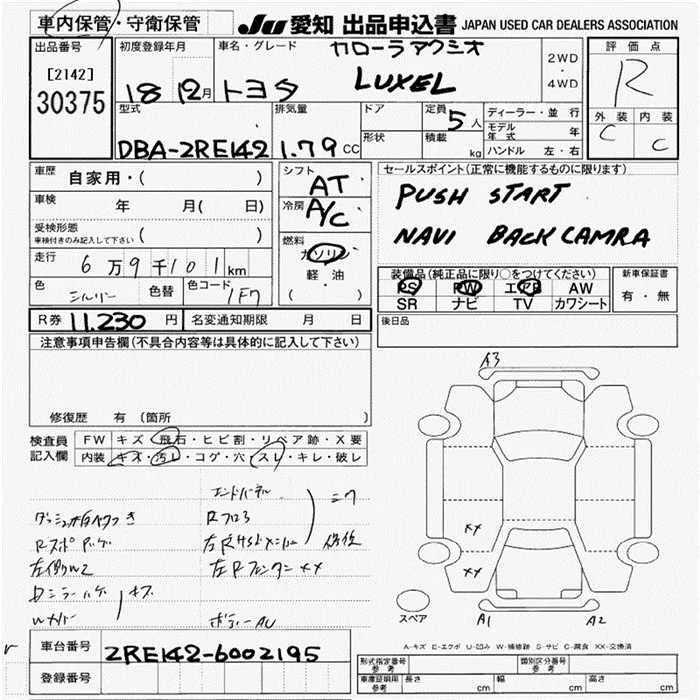 車内保管・守衛保管
JU 愛知 出品申込書 JAPAN USED CAR DEALERS ASSOCIATION
出品番号
[2142]
30375
初度登録年月
18 12月
車名・グレード
カローラアクシオ
トヨタ LUXEL
2WD
・
4WD
評価点
R
外装 内装
C C
型式
DBA-ZRE142
排気量
1.79 CC
ドア
形状
定員
5人
積載
kg
ディーラー・並行
モデル年式 年
ハンドル 左・右
車歴
自家用・( )
車検
年 月( 日)
受検形態
車検付きのみ記入して下さい ( )
走行
6万9千101km
色
シルバー
色替
色コード
1F7
シフト
AT
冷房
A/C
燃料
ガソリン
軽・油
( ・ )
セールスポイント(正常に機能するものに限ります)
PUSH START
NAVI BACK CAMRA
装備品(純正品に限り○をつけてください)
PS PW エアB AW
SR ナビ TV カワシート
新車保証書
有・無
後日品
R券 11.230 円
名変通知期限 月 日
注意事項申告欄(不具合内容等は具体的に記入して下さい)
修復歴 有(箇所 )
検査員
記入欄
FW キズ・飛石・ヒビ割・リペア跡・X要
内装 キズ・汚レ・コゲ・穴・スレ・キレ・破レ
エンドパネル
Rフロア
ボディーAU
A3
XX
XX
A1 A2
スペア
A-キズ E-エクボ U-凹み W-補修跡 S-サビ C-腐食 XX-交換済
車台番号
ZRE142-6002195
登録番号
形式指定番号
参考
類別区分番号
参考
車庫証明用
参考
長さ cm
幅 cm
高さ cm